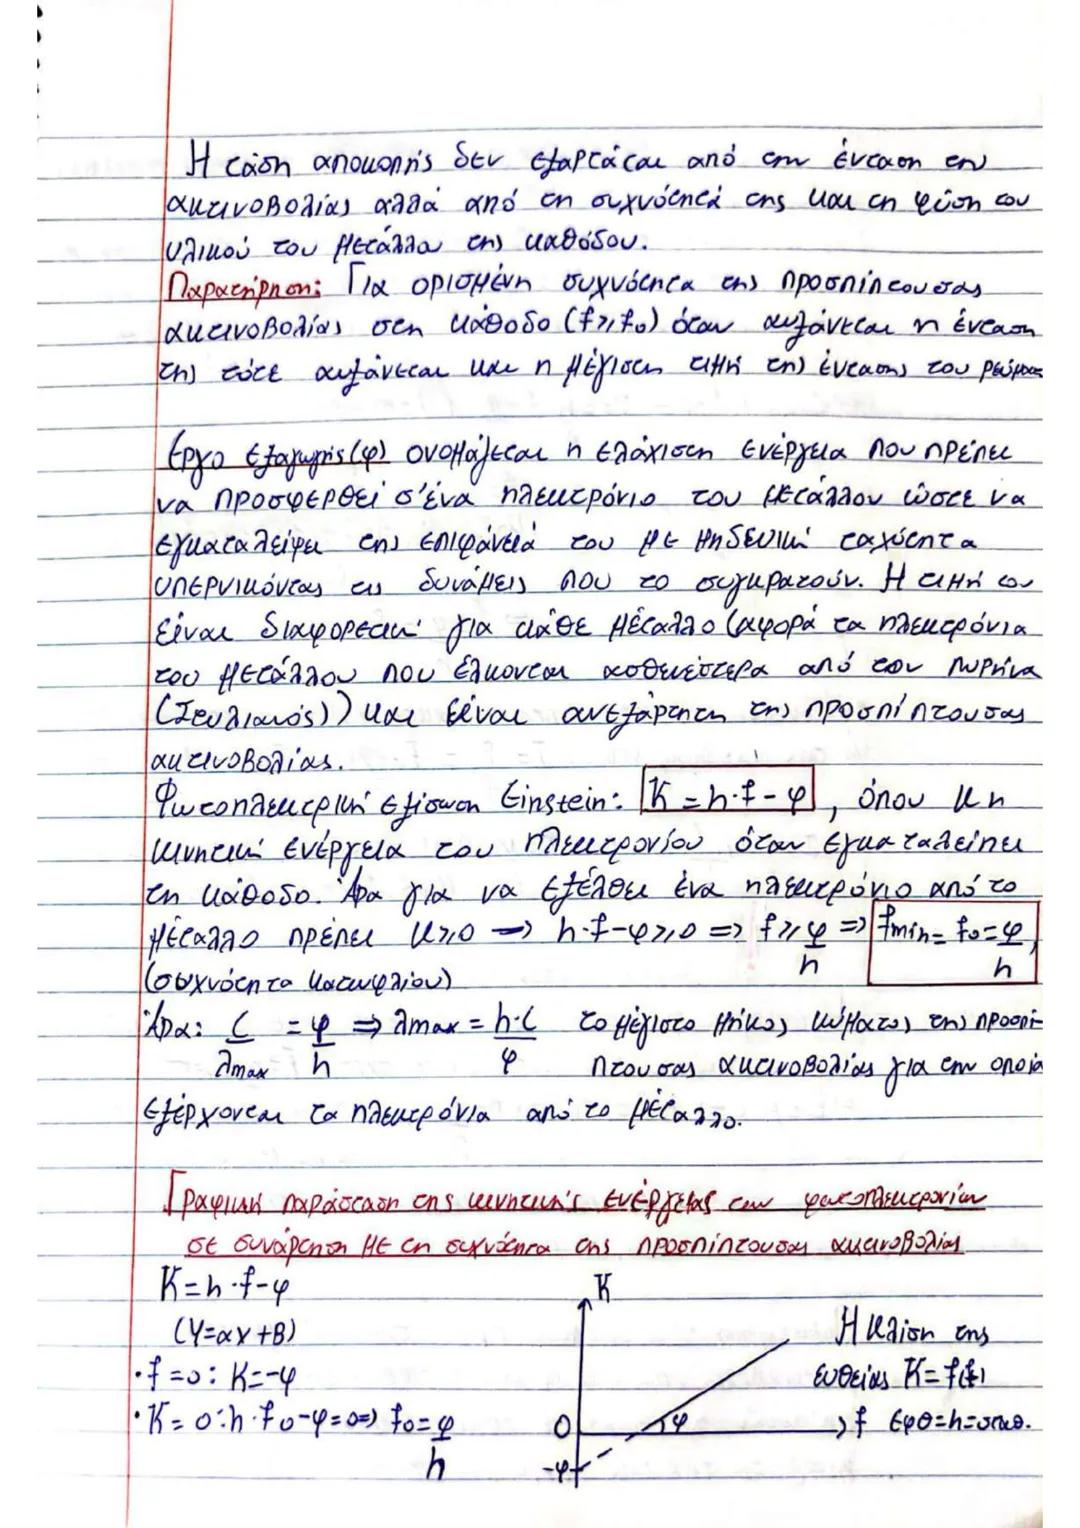 Η τάση αποκοπής δεν εξαρτάται από την ένταση της
ακτινοβολίας αλλά από τη συχνότητά της και τη φύση του
υλικού του μετάλλου της καθόδου.
Παρατήρηση: Για ορισμένη συχνότητα της προσπίπτουσας
ακτινοβολίας στην κάθοδο (f≥f₀) όταν αυξάνεται η ένταση
της τότε αυξάνεται και η μέγιστη τιμή της έντασης του ρεύματος
Έργο εξαγωγής (φ) ονομάζεται η ελάχιστη ενέργεια που πρέπει
να προσφερθεί σ'ένα ηλεκτρόνιο του μετάλλου ώστε να
εγκαταλείψει της επιφάνειά του με μηδενική ταχύτητα
υπερνικόντας τις δυνάμεις που το συγκρατούν. Η τιμή του
είναι διαφορετική για κάθε μέταλλο (αφορά τα ηλεκτρόνια
του μετάλλου που έλκονται ασθενέστερα από τον πυρήνα
και είναι ανεξάρτητη της προσπίπτουσας
ακτινοβολίας.
Φωτοηλεκτρική εξίσωση Einstein: K = h·f - φ , όπου K η
κινητική ενέργεια του ηλεκτρονίου όταν εγκαταλείπει
τη κάθοδο. Άρα για να εξέλθει ένα ηλεκτρόνιο από το
μέταλλο πρέπει K≥0 => h·f-φ≥0 => f≥φ/h => fmin= f₀=φ/h
(συχνότητα κατωφλίου)
Άρα: c/λmax = φ/h => λmax = h·c/φ το μέγιστο μήκος κύματος της προσπί-
πτουσας ακτινοβολίας για την οποία
εξέρχονται τα ηλεκτρόνια από το μέταλλο.
Γραφική παράσταση της κινητικής ενέργειας των φωτοηλεκτρονίων
σε συνάρτηση με τη συχνότητα της προσπίπτουσας ακτινοβολίας
K=h·f-φ
(Y=αx+B)
·f=0: K=-φ
·K=0: h·f₀-φ=0=> f₀=φ/h
K
0
φ
f
-φ
Η κλίση της
ευθείας K=f(f)
εφθ=h=σταθ.